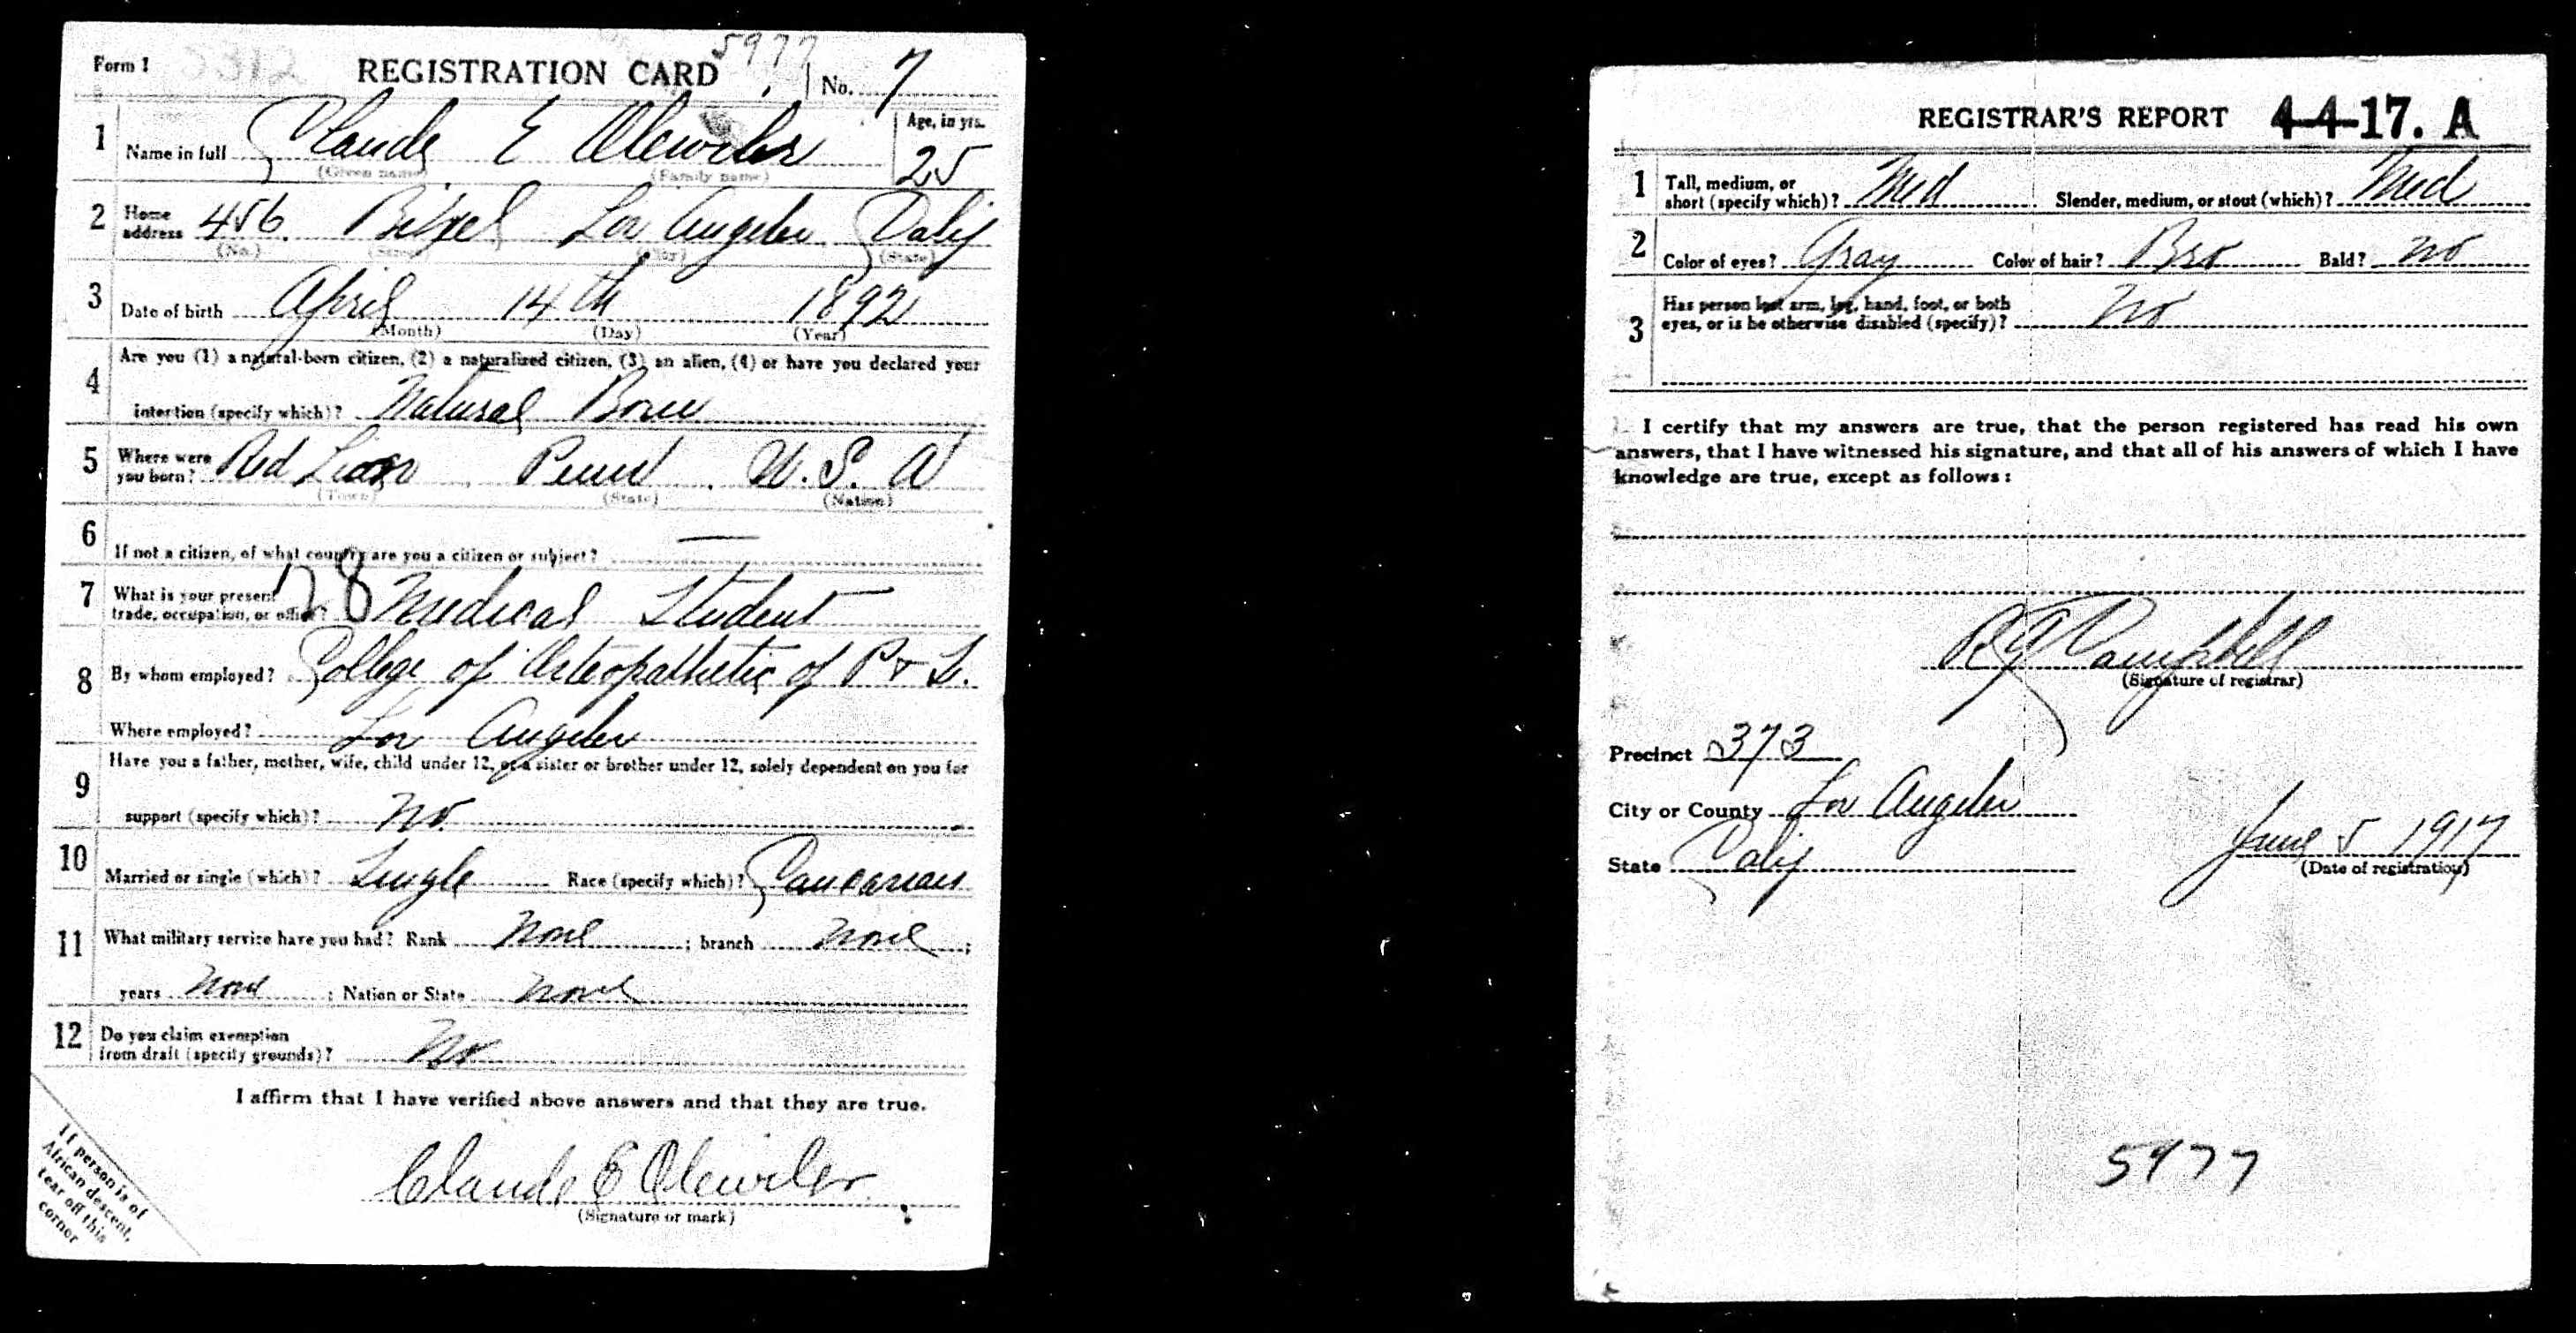 5977
Form 1 REGISTRATION CARD No. 7
1 Name in full Claude E Olewiler Age, in yrs.
(Given name) (Family name) 25
2 Home address 456 Bixel Los Angeles Calif
(No.) (Street) (City) (State)
3 Date of birth April 14th 1892
(Month) (Day) (Year)
Are you (1) a natural-born citizen, (2) a naturalized citizen, (3) an alien, (4) or have you declared your
4 intention (specify which)? Natural Born
5 Where were you born? Red Lion Penn U.S.A
(Town) (State) (Nation)
6 If not a citizen, of what country are you a citizen or subject? —
28
7 What is your present trade, occupation, or office? Medical Student
8 By whom employed? College of Osteopathetic of P & S.
Where employed? Los Angeles
Have you a father, mother, wife, child under 12, or a sister or brother under 12, solely dependent on you for
9 support (specify which)? No.
10 Married or single (which)? Single Race (specify which)? Caucasian
11 What military service have you had? Rank None ; branch None ;
years None ; Nation or State None
12 Do you claim exemption from draft (specify grounds)? No
I affirm that I have verified above answers and that they are true.
Claude E Olewiler
(Signature or mark)
If person is of
African descent,
tear off this
corner
REGISTRAR'S REPORT 4-4-17. A
1 Tall, medium, or short (specify which)? Med Slender, medium, or stout (which)? Med
2 Color of eyes? Gray Color of hair? Bro Bald? No
3 Has person lost arm, leg, hand, foot, or both
eyes, or is he otherwise disabled (specify)? No
I certify that my answers are true, that the person registered has read his own
answers, that I have witnessed his signature, and that all of his answers of which I have
knowledge are true, except as follows:
Campbell
(Signature of registrar)
Precinct 373
City or County Los Angeles
State Calif June 5 1917
(Date of registration)
5977